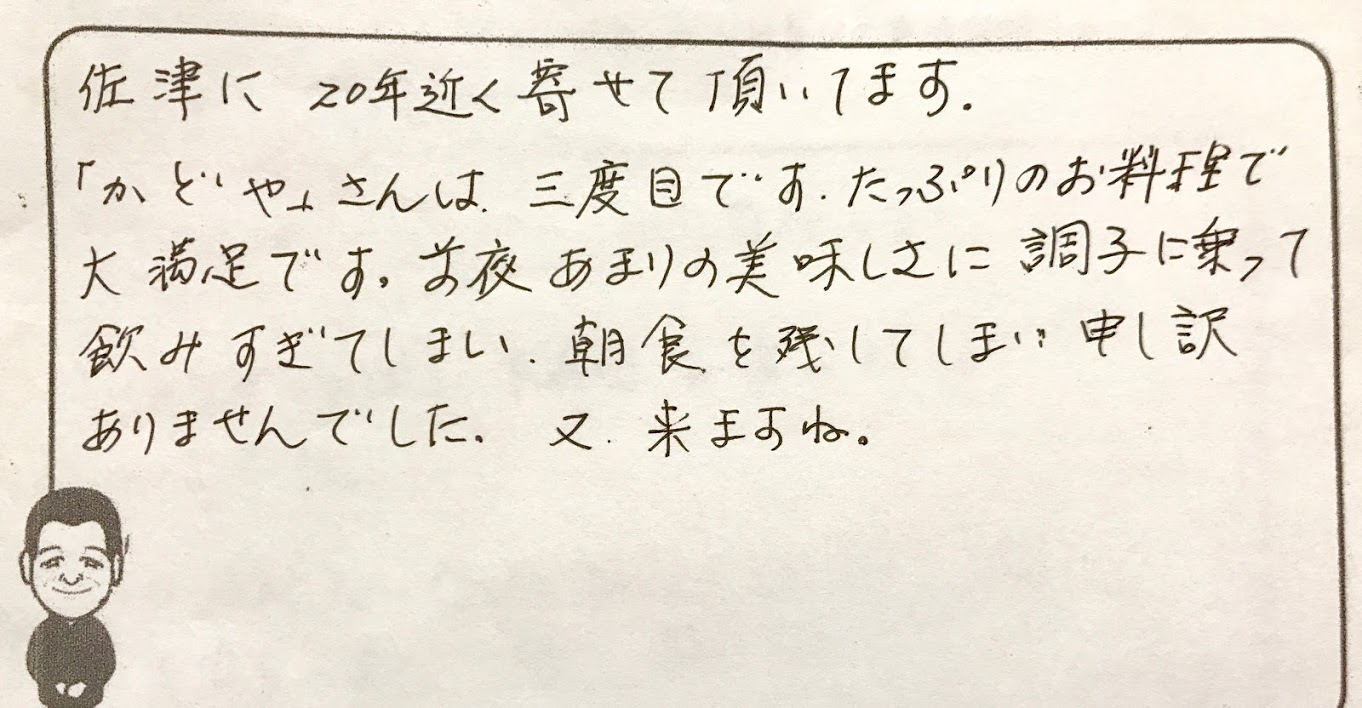 佐津に 20年近く寄せて頂いてます.
「かどや」さんは、三度目です.たっぷりのお料理で
大満足です。前夜あまりの美味しさに調子に乗って
飲みすぎてしまい、朝食を残してしまい申し訳
ありませんでした。 又、来ますね。